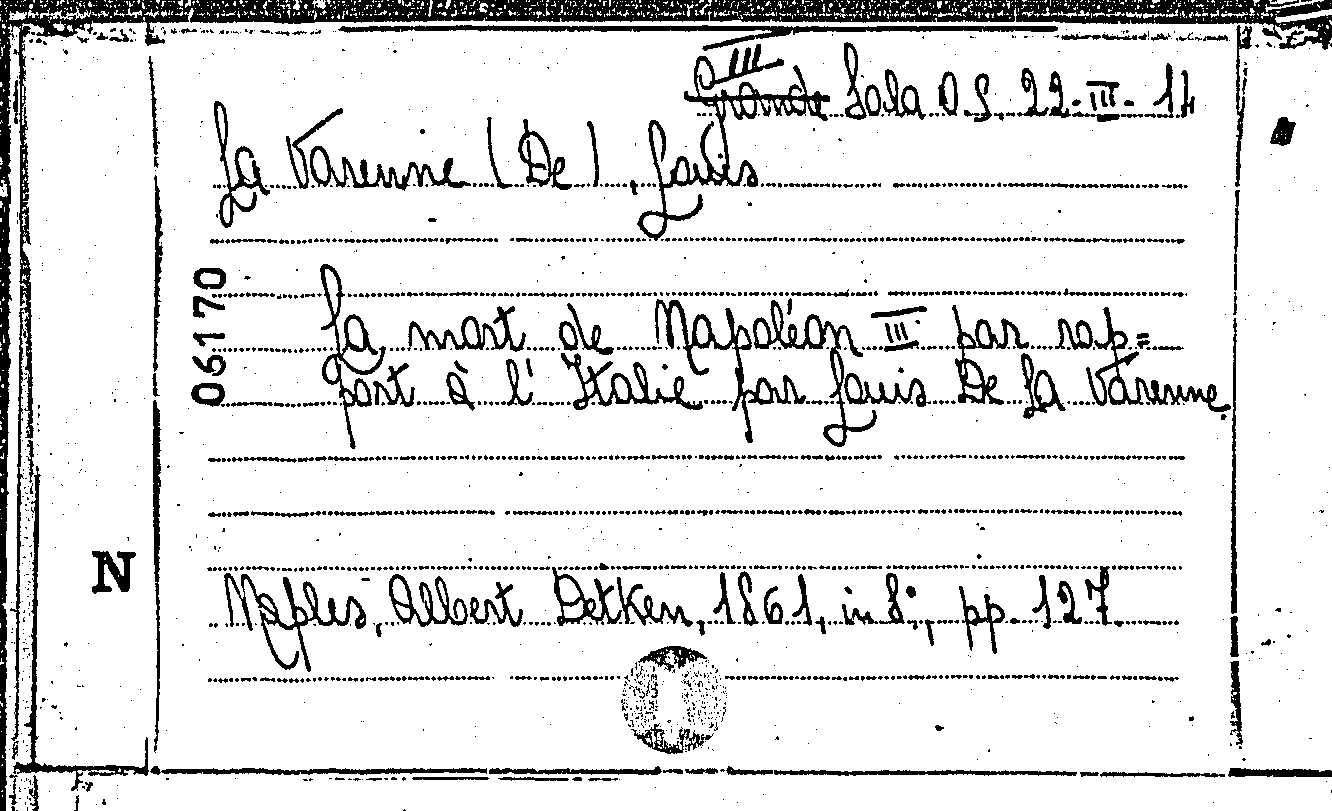 III
Grande Sala O.S. 22-III-14
La Varenne (De), Louis
La mort de Napoléon III par rap=
port à l'Italie par Louis De La Varenne.
06170
N
Naples, Albert Detken, 1861, in 8°, pp. 127.